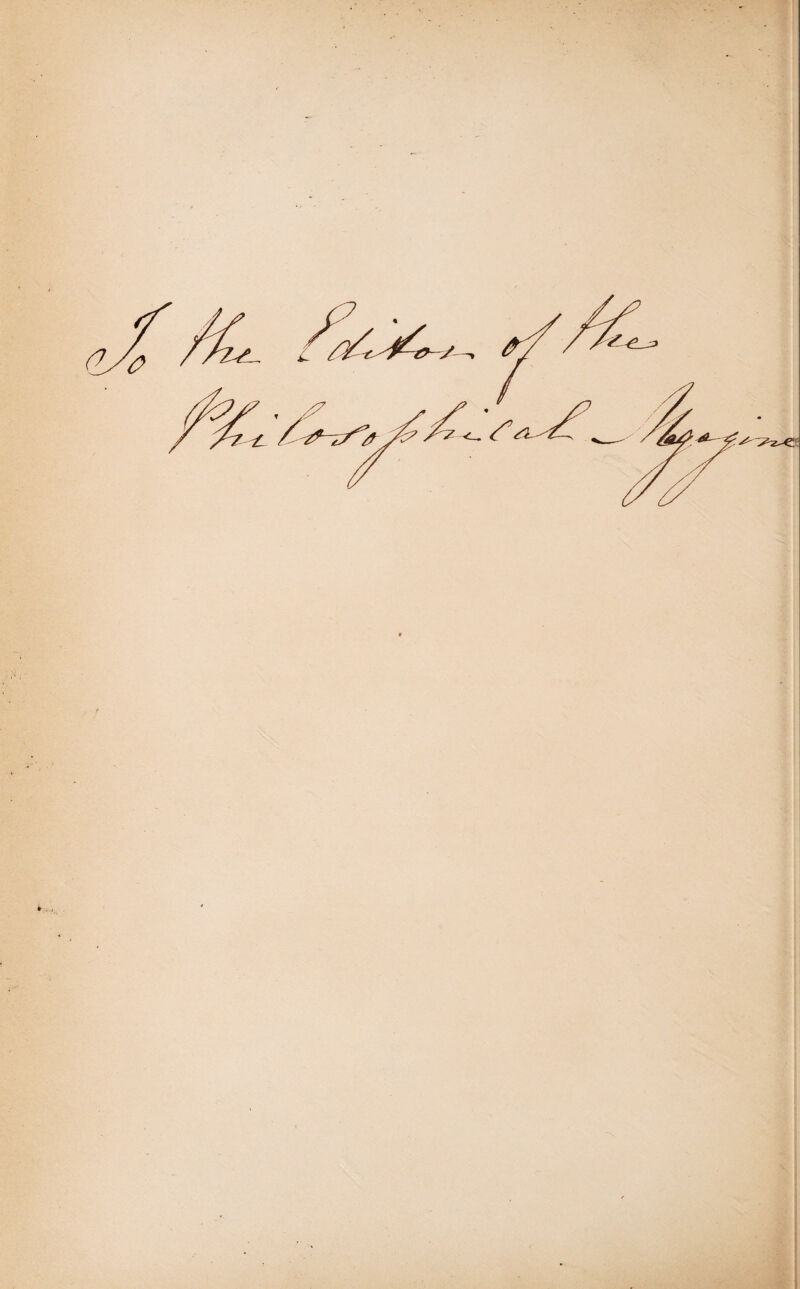 To the Editor of the
Philosophical Magazine